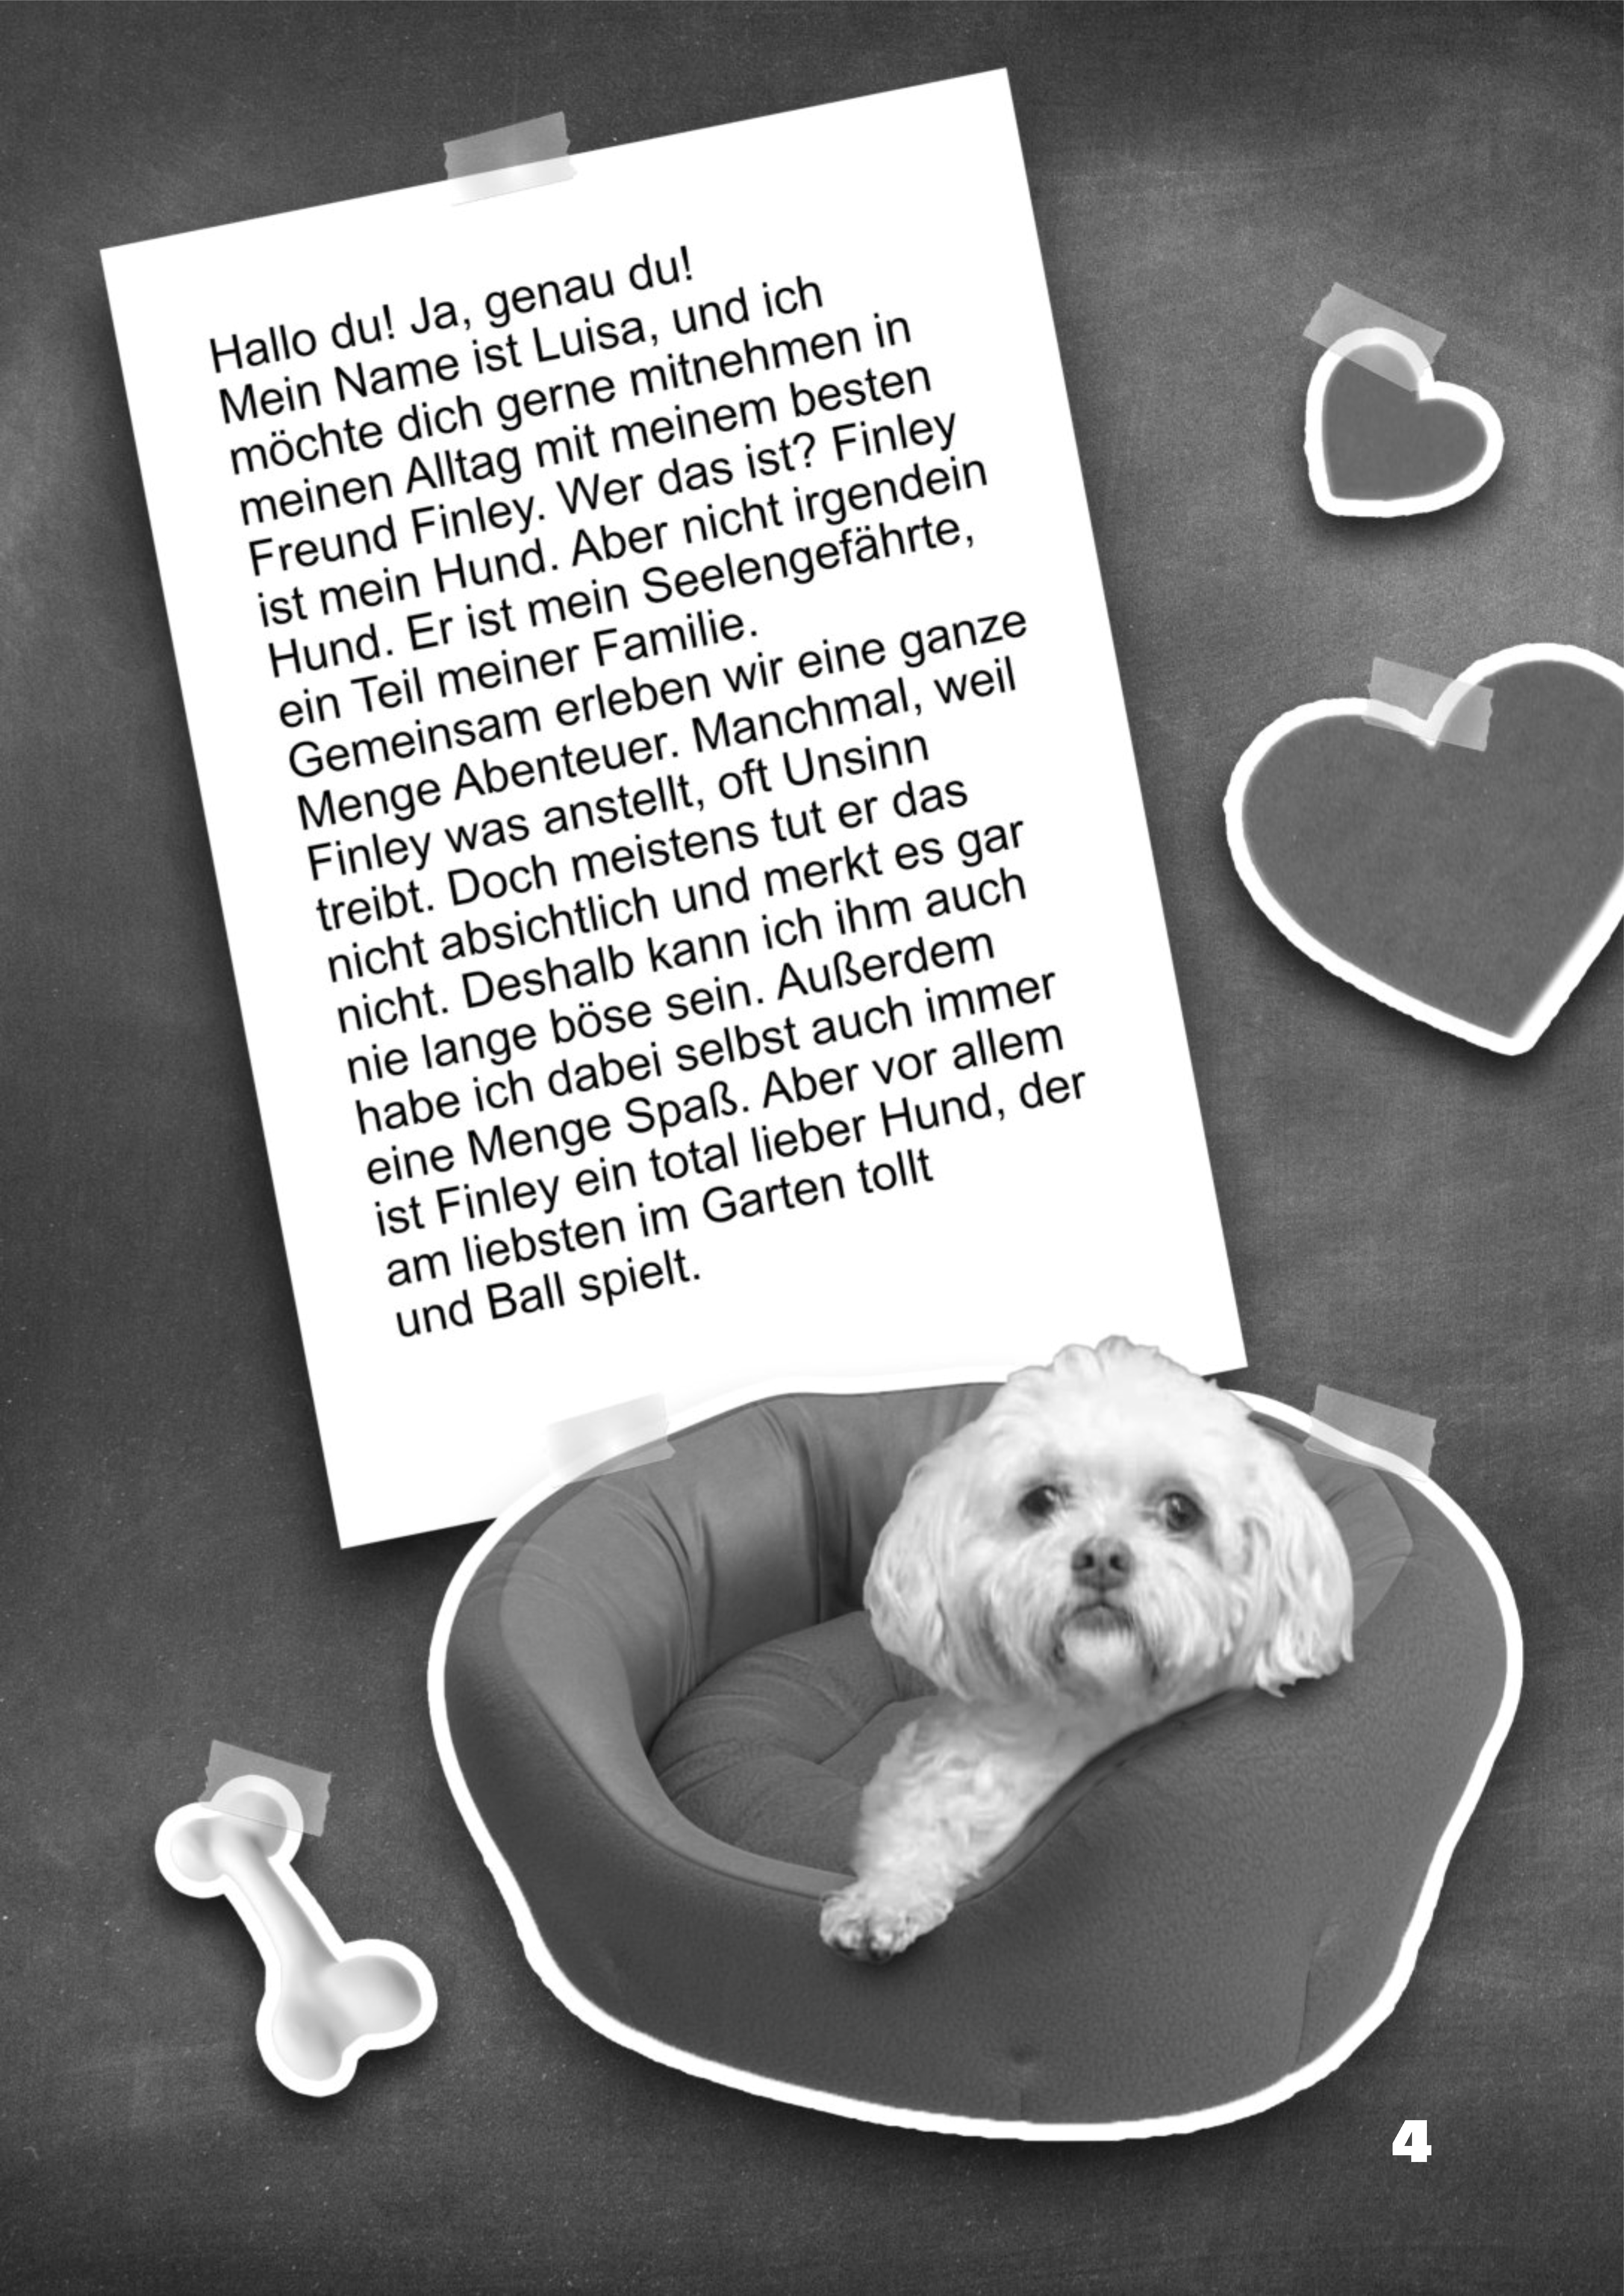 Hallo du! Ja, genau du!
Mein Name ist Luisa, und ich
möchte dich gerne mitnehmen in
meinen Alltag mit meinem besten
Freund Finley. Wer das ist? Finley
ist mein Hund. Aber nicht irgendein
Hund. Er ist mein Seelengefährte,
ein Teil meiner Familie.
Gemeinsam erleben wir eine ganze
Menge Abenteuer. Manchmal, weil
Finley was anstellt, oft Unsinn
treibt. Doch meistens tut er das
nicht absichtlich und merkt es gar
nicht. Deshalb kann ich ihm auch
nie lange böse sein. Außerdem
habe ich dabei selbst auch immer
eine Menge Spaß. Aber vor allem
ist Finley ein total lieber Hund, der
am liebsten im Garten tollt
und Ball spielt.
4